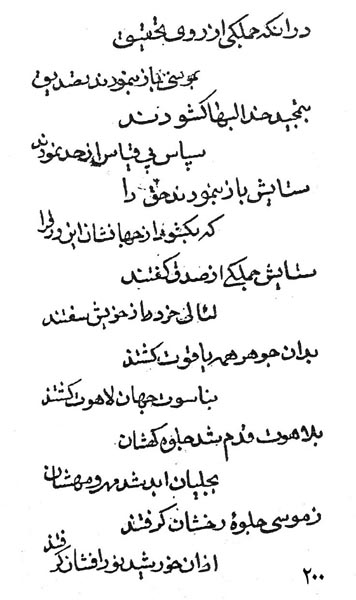 در انکه جملکی از روی تحقیق
بموسی باز نمودند تصدیق
بتمجید خدا لبها کشودند
سپاس بی قیاس از حد نمودند
ستایش باز نمودند حق را
که بکشود از جهانشان این ورق را
ستایش جملکی از صدق کفتند
لئالی خرد را ز خویش سفتند
بدان جوهر همه یاقوت کشتند
بناسوت جهان لاهوت کشتند
بلاهوت قدم شد جلوه کهشان
بجلیان ابد شد مهر و مهشان
ز موسی جلوۀ رخشان کرفتند
از ان خورشید نور افشان کرفتند
۲۰۰